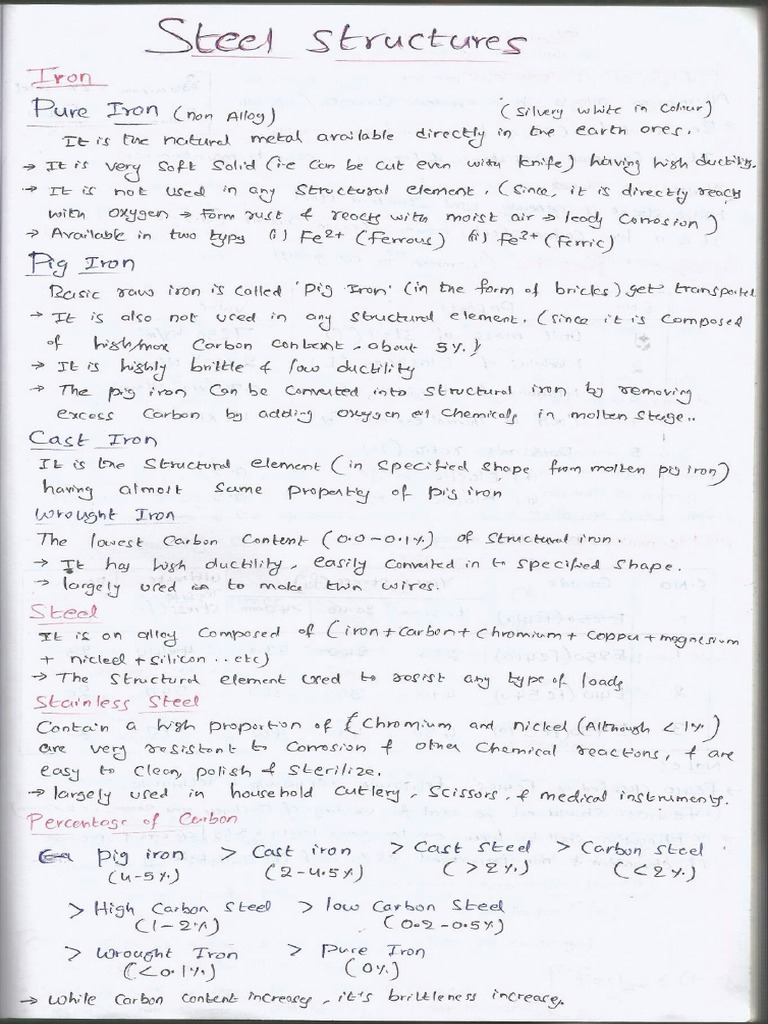 Steel Structures
Iron
Pure Iron (non Alloy) (Silvery white in Colour)
It is the natural metal available directly in the earth ores.
→ It is very soft Solid (i.e Can be cut even with knife) having high ductility.
→ It is not used in any structural element. (Since, it is directly reacts
with oxygen → Form rust & reacts with moist air → leads Corrosion)
→ Available in two types (i) Fe2+ (Ferrous) (ii) Fe3+ (Ferric)
Pig Iron
Basic raw iron is called 'Pig Iron' (in the form of bricks) get transported
→ It is also not used in any structural element. (since it is composed
of high/max Carbon content, about 5%)
→ It is highly brittle & low ductility
→ The pig iron Can be Converted into structural iron by removing
excess Carbon by adding oxygen or Chemicals in molten stage..
Cast Iron
It is the structural element (in specified shape from molten pig iron)
having almost same property of pig iron
Wrought Iron
The lowest Carbon Content (0.0-0.1%) of structural iron.
→ It has high ductility, easily Converted in to specified shape.
→ largely used in to make thin wires.
Steel
It is an alloy Composed of (iron+carbon+chromium+copper+magnesium
+ nickel + silicon .. etc)
→ The structural element used to resist any type of loads
Stainless Steel
Contain a high proportion of (Chromium and nickel (Although <1%)
are very resistant to Corrosion & other Chemical reactions, & are
easy to Clean, polish & sterilize.
→ largely used in household Cutlery, Scissors, & medical instruments.
Percentage of Carbon
Pig iron > Cast iron > Cast Steel > Carbon Steel
(4-5%) (2-4.5%) (>2%) (<2%)
> High Carbon Steel > low Carbon Steel
(1-2%) (0.2-0.5%)
> Wrought Iron > Pure Iron
(<0.1%) (0%)
→ While Carbon content increases, it's brittleness increase.